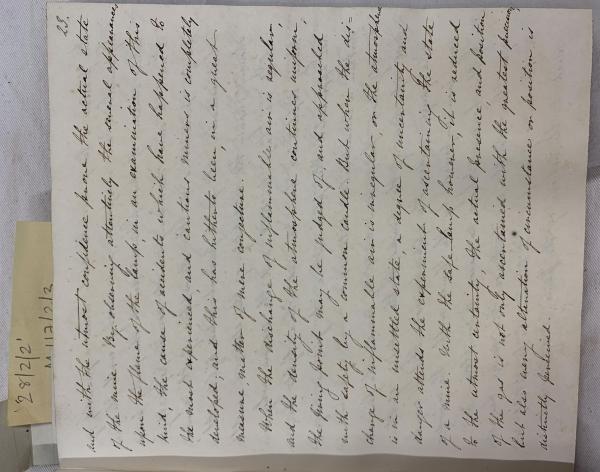 28.
and with the utmost confidence prove the actual state
of the mine. By observing attentively the several appearances
upon the flame of the lamp, in an examination of this
kind, the cause of accidents which have happened to
the most experienced, and cautious miners is completely
developed, and this has hitherto been, in a great
measure matter of mere conjecture.
When the discharge of inflammable air is regular,
and the density of the atmosphere continues uniform,
the firing point may be judged of, and approached
with safety by a common candle. But when the dis-
charge of inflammable air is irregular, or the atmosphere
is in an unsettled state, a degree of uncertainty and
danger attends the experiment of ascertaining the state
of a mine. With the safe-lamp however, it is reduced
to the utmost certainty, the actual presence and position
of the gas is not only ascertained with the greatest precision,
but also every alteration of circumstance or position is
distinctly perceived.
'28/2/2'